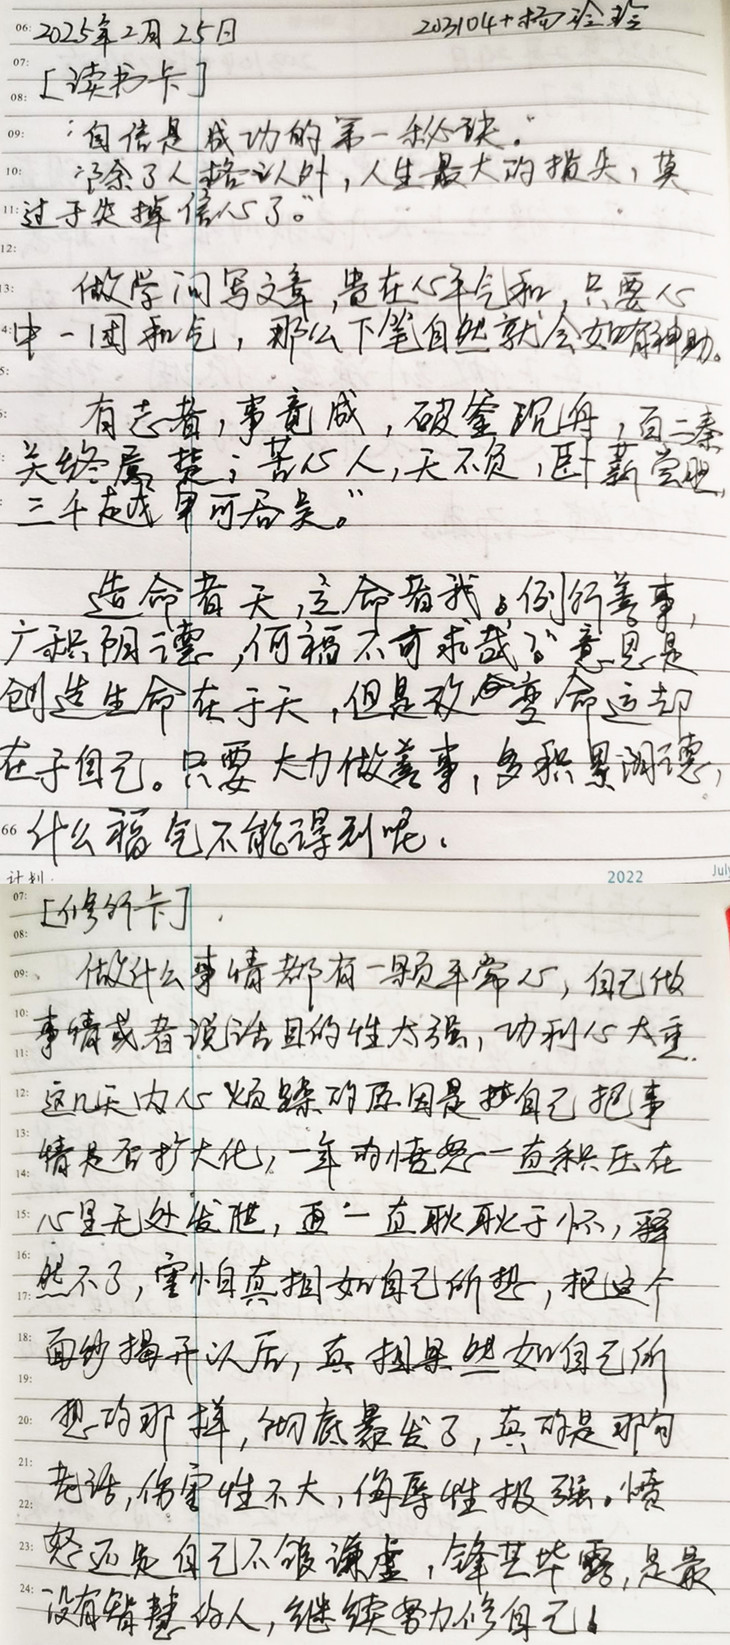 2025年2月25日
203104+杨玲玲
06:
07:
[读书卡]
08:
09:
“自信是成功的第一秘诀。”
10:
“除了人格以外，人生最大的损失，莫
11:
过于失掉信心了。”
12:
13:
做学问写文章，贵在心平气和，只要心
中一团和气，那么下笔自然就会如有神助。
有志者，事竟成，破釜沉舟，百二秦
关终属楚；苦心人，天不负，卧薪尝胆，
三千越甲可吞吴。”
造命者天，立命者我。例行善事，
广积阴德，何福不可求哉？”意思是
创造生命在于天，但是改变命运却
在于自己。只要大力做善事，多积累阴德，
66
什么福气不能得到呢.
计划
2022
July
07:
[修行卡]
08:
09:
做什么事情都有一颗平常心，自己做
10:
事情或者说话目的性太强，功利心太重.
11:
12:
这几天内心烦躁的原因是自己把事
13:
情是否扩大化，一年的愤怒一直积压在
14:
15:
心里无处发泄，更一直耿耿于怀，释
16:
然不了，害怕真相如自己所想，把这个
17:
18:
面纱揭开以后，真相果然如自己所
19:
20:
想的那样，彻底暴发了，真的是那句
21:
老话，伤害性不大，侮辱性极强。愤
22:
23:
怒还是自己不够谦虚，锋芒毕露，是最
24:
没有智慧的人，继续努力修自己。